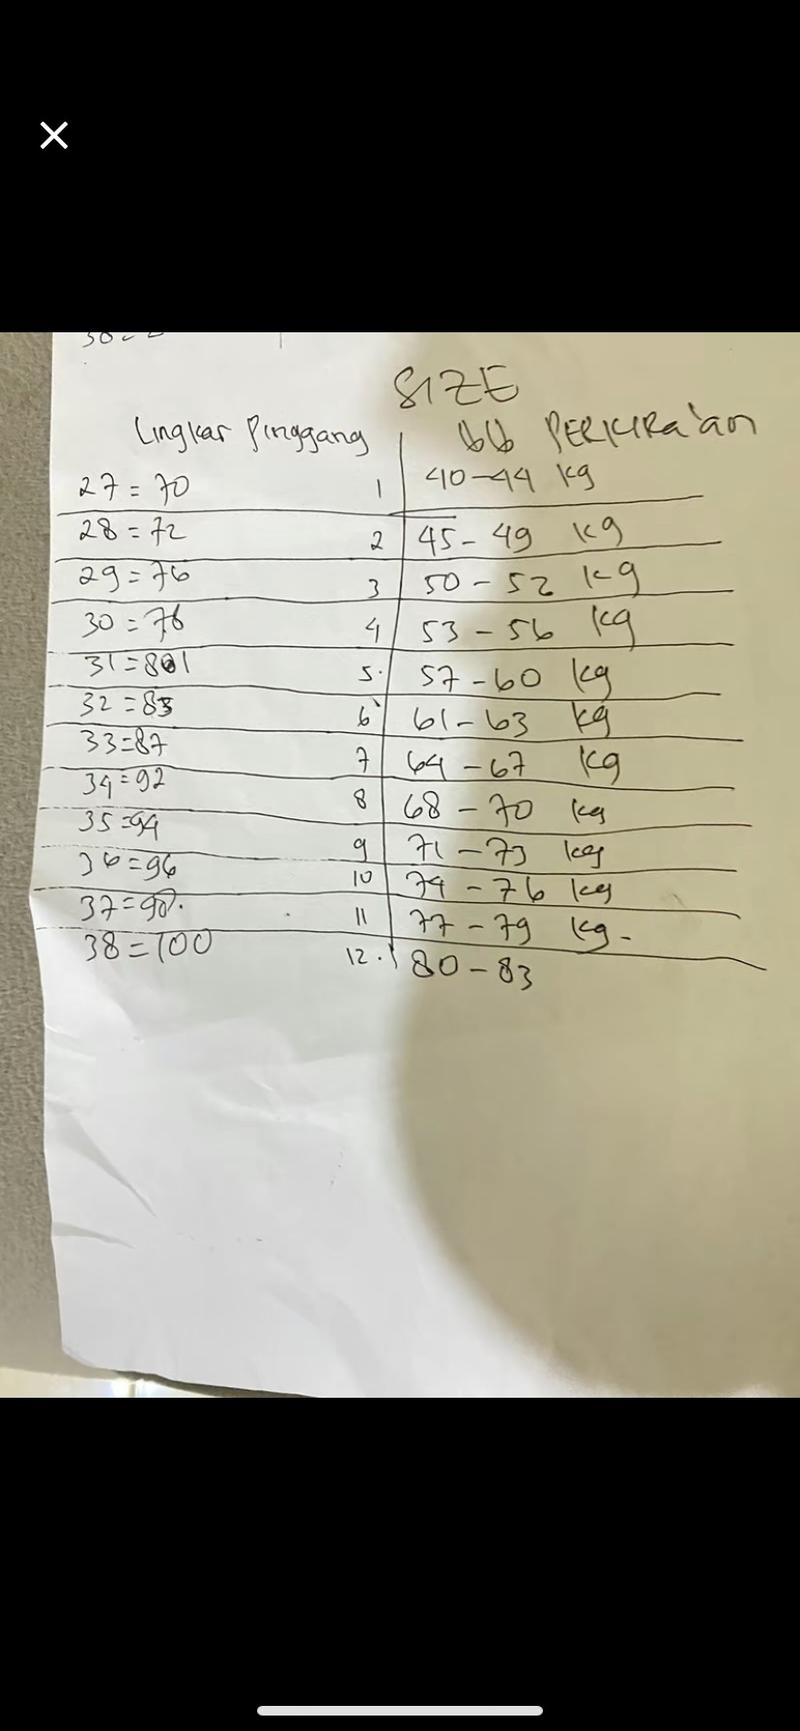 SIZE
Lingkar Pinggang bb PERKIRA'an
27 = 70 1 40-44 kg
28 = 72 2 45-49 kg
29 = 76 3 50-52 kg
30 = 78 4 53-56 kg
31 = 81 5. 57-60 kg
32 = 83 6 61-63 kg
33=87 7 64-67 kg
34=92 8 68-70 kg
35=94 9 71-73 kg
36=96 10 74-76 kg
37= 11 77-79 kg-
38=100 12. 80-83